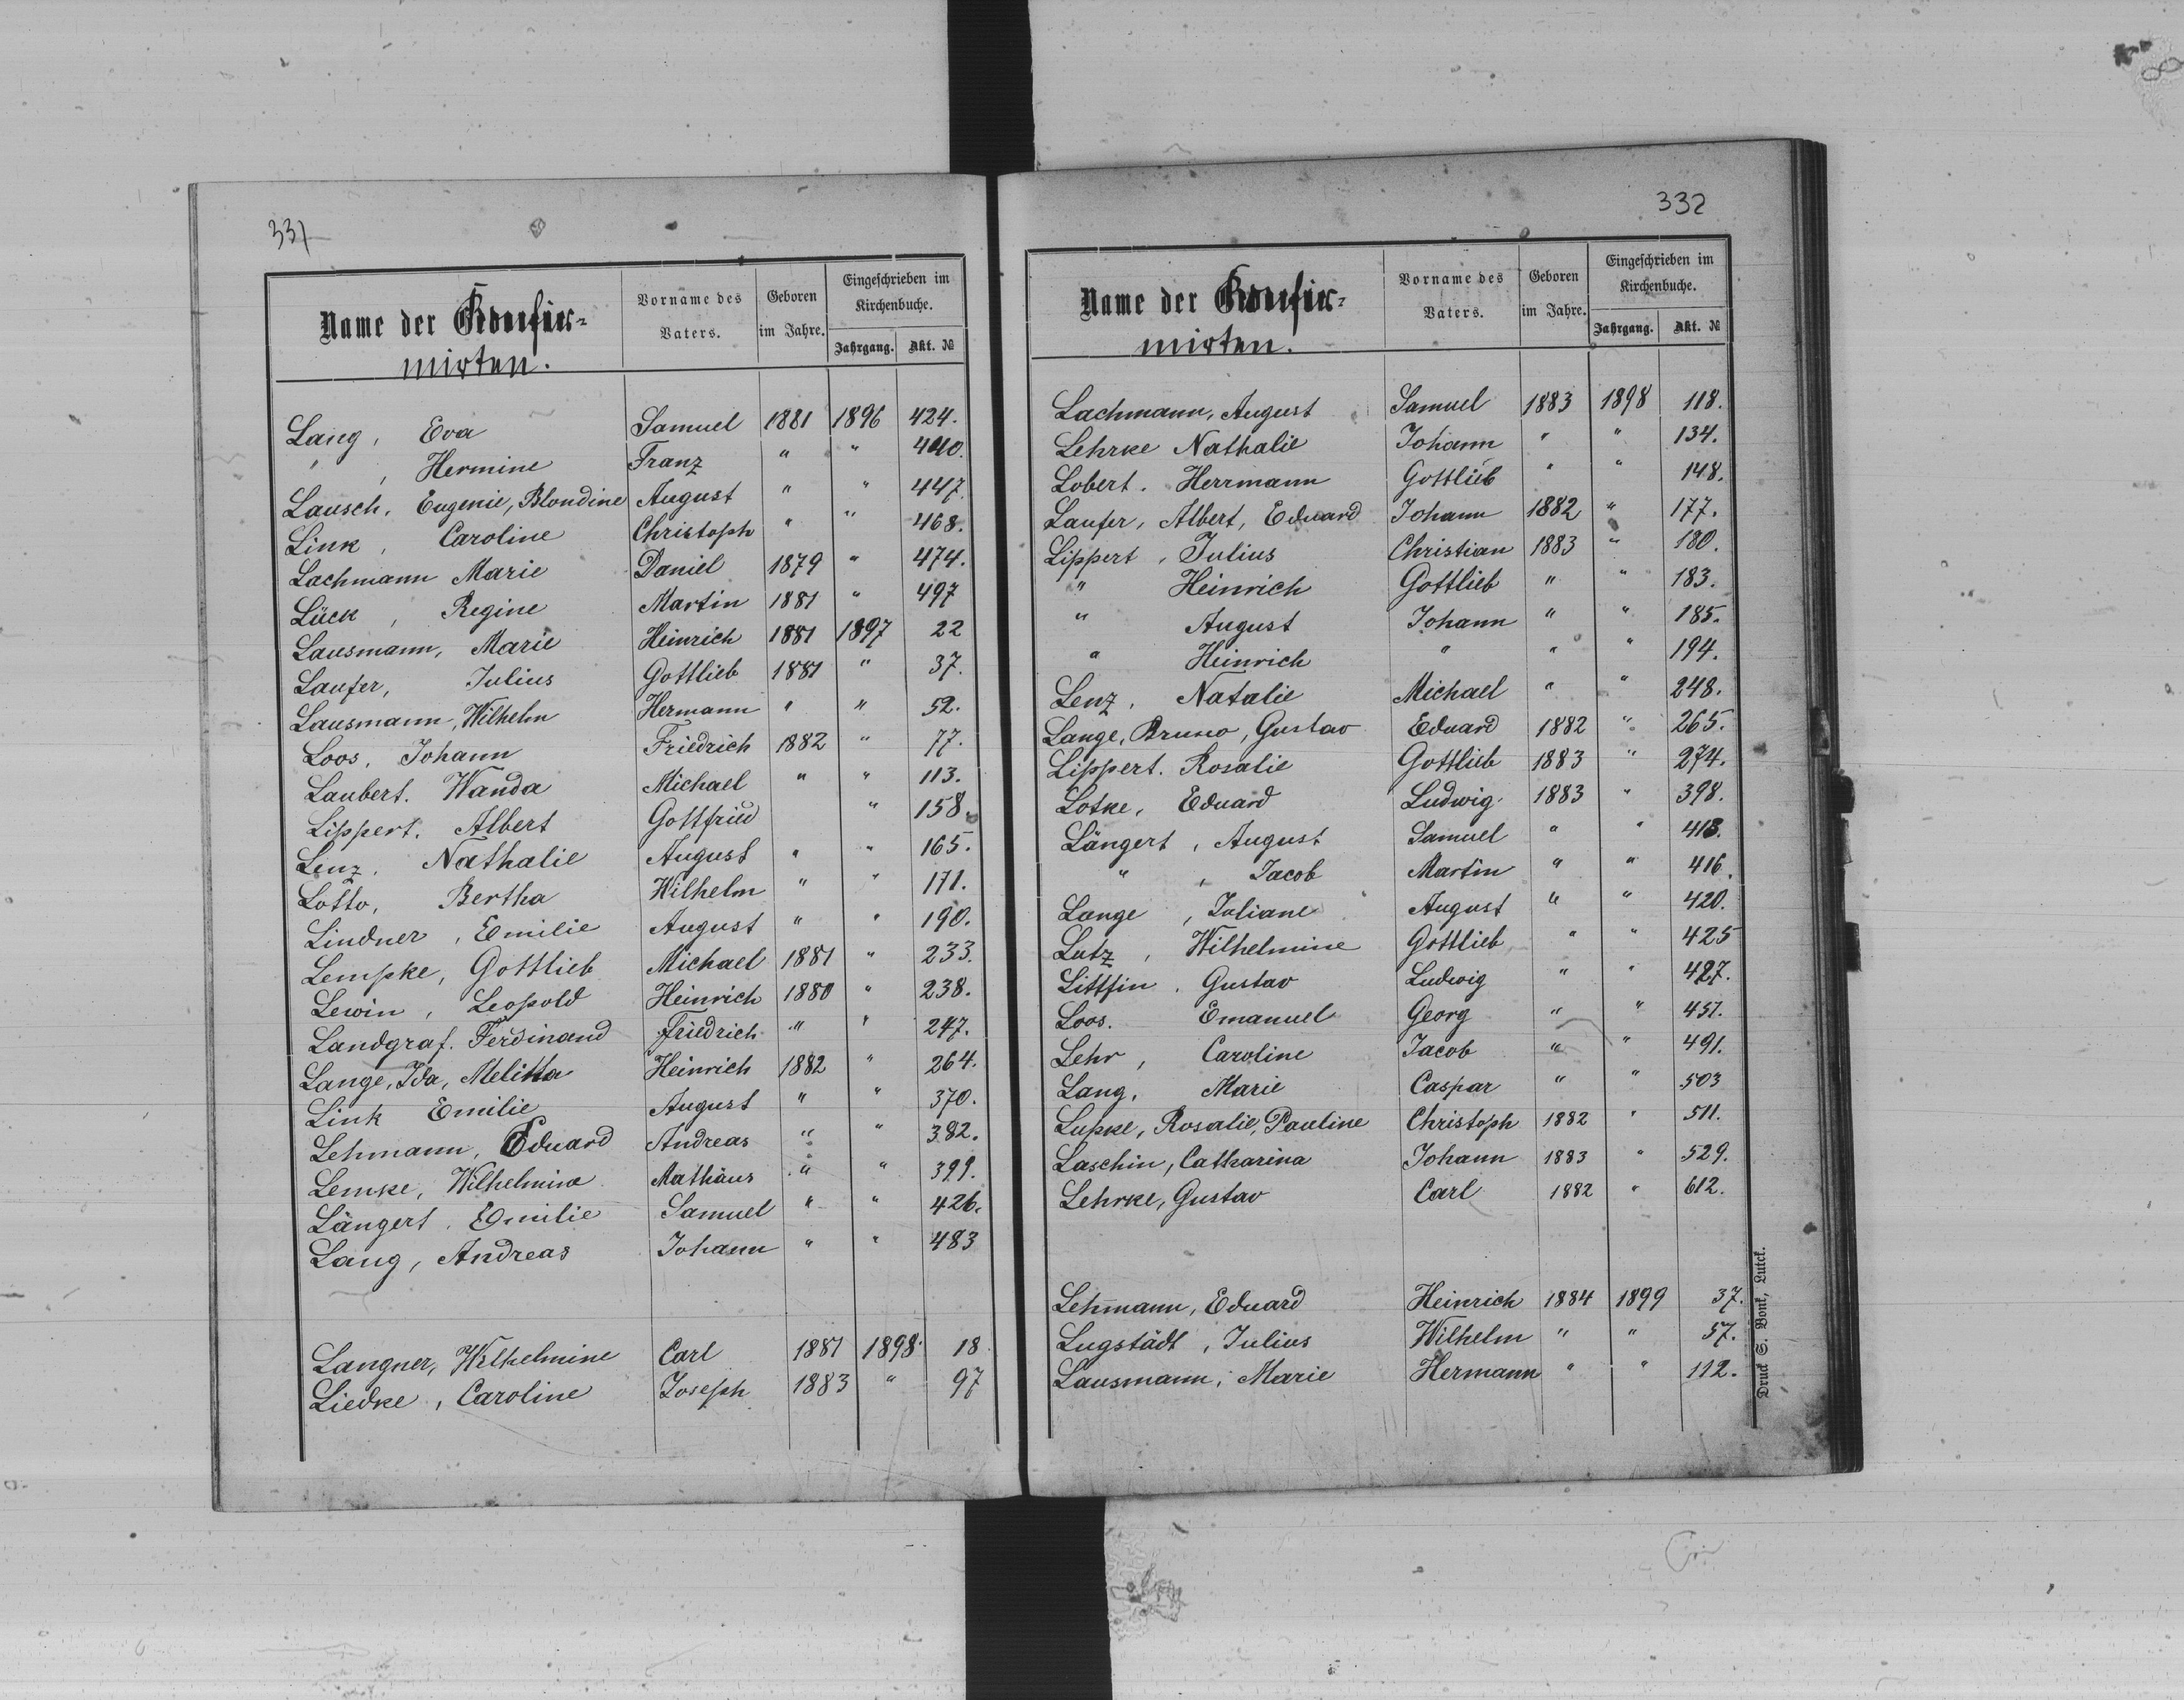 331
Name der Konfir-
mirten.
Vorname des
Vaters.
Geboren
im Jahre.
Eingeschrieben im
Kirchenbuche.
Jahrgang. Akt. №
Lang, Eva Samuel 1881 1896 424.
" , Hermine Franz " " 440.
Lausch, Eugenie, Blondine August " " 447.
Link, Caroline Christoph " " 468.
Lachmann Marie Daniel 1879 " 474.
Lück, Regine Martin 1881 " 497
Lausmann, Marie Heinrich 1881 1897 22
Laufer, Julius Gottlieb 1881 " 37.
Lausmann, Wilhelm Hermann " " 52.
Loos, Johann Friedrich 1882 " 77.
Laubert. Wanda Michael " " 113.
Lippert. Albert Gottfried " 158.
Lenz, Nathalie August " " 165.
Lotto, Bertha Wilhelm " " 171.
Lindner, Emilie August " " 190.
Lempke, Gottlieb Michael 1881 " 233.
Lewin, Leopold Heinrich 1880 " 238.
Landgraf. Ferdinand Friedrich " " 247.
Lange, Ida, Melitta Heinrich 1882 " 264.
Link Emilie August " " 370.
Lehmann, Eduard Andreas " " 382.
Lemke, Wilhelmine Mathäus " " 399.
Längert, Emilie Samuel " " 426.
Lang, Andreas Johann " " 483
Langner, Wilhelmine Carl 1881 1898 18
Liedke, Caroline Joseph 1883 " 97
332
Name der Konfir-
mirten.
Vorname des
Vaters.
Geboren
im Jahre.
Eingeschrieben im
Kirchenbuche.
Jahrgang. Akt. №
Lachmann, August Samuel 1883 1898 118.
Lehrke Nathalie Johann " " 134.
Lobert. Herrmann Gottlieb " " 148.
Laufer, Albert, Eduard Johann 1882 " 177.
Lippert, Julius Christian 1883 " 180.
" Heinrich Gottlieb " " 183.
" August Johann " " 185.
" Heinrich " " " 194.
Lenz, Natalie Michael " " 248.
Lange, Bruno, Gustav Eduard 1882 " 265.
Lippert. Rosalie Gottlieb 1883 " 274.
Lotke, Eduard Ludwig 1883 " 398.
Längert, August Samuel " " 413.
" , Jacob Martin " " 416.
Lange, Juliane August " " 420.
Lutz, Wilhelmine Gottlieb " " 425
Littfin. Gustav Ludwig " " 427.
Loos. Emanuel Georg " " 451.
Lehr, Caroline Jacob " " 491.
Lang, Marie Caspar " " 503
Lupke, Rosalie, Pauline Christoph 1882 " 511.
Laschin, Catharina Johann 1883 " 529.
Lehrke, Gustav Carl 1882 " 612.
Lehmann, Eduard Heinrich 1884 1899 37.
Lugstädt, Julius Wilhelm " " 57.
Lausmann, Marie Hermann " " 112.
Druck S. Bonk, Lutck.